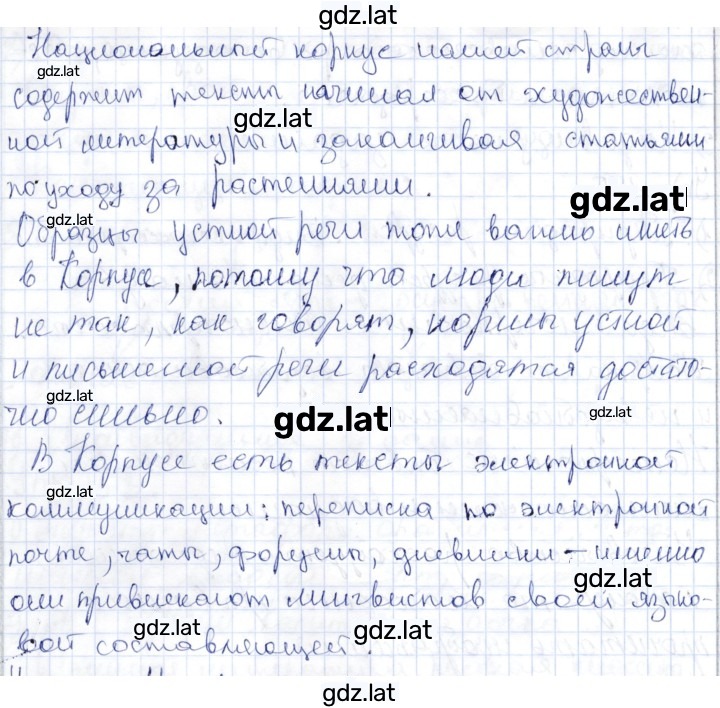 gdz.lat
Национальный корпус нашей страны
gdz.lat
содержит тексты начиная от художествен-
gdz.lat
ной литературы и заканчивая статьями
по уходу за растениями.
gdz.lat
gdz.lat
Образцы устной речи тоже важно иметь
в Корпусе, потому что люди пишут
не так, как говорят, нормы устной
и письменной речи расходятся достато-
чно сильно.
gdz.lat
gdz.lat
В Корпусе есть тексты электронной
gdz.lat
коммуникации: переписка по электронной
почте, чаты, форумы, дневники – именно
gdz.lat
они привлекают лингвистов своей языко-
gdz.lat
вой составляющей.
gdz.lat
gdz.lat